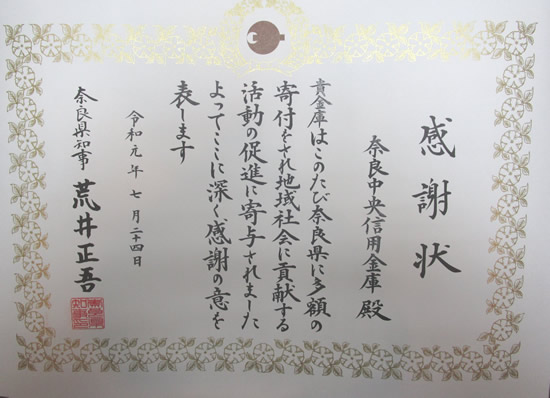 感謝状
奈良中央信用金庫 殿
貴金庫はこのたび奈良県に多額の
寄付をされ地域社会に貢献する
活動の促進に寄与されました
よってここに深く感謝の意を
表します
令和元年 七月二十四日
奈良県知事 荒井正吾